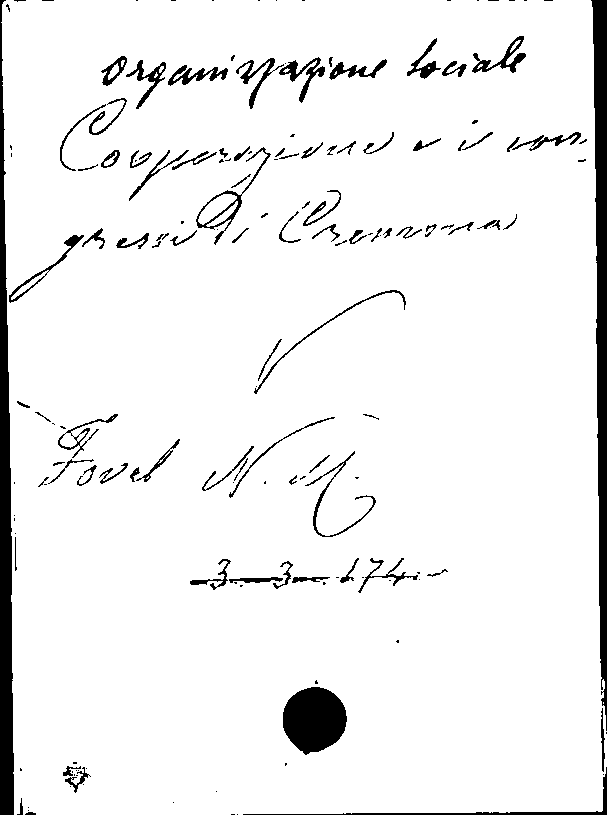 Organizzazione Sociale
Cooperazione e i con-
gressi di Cremona
V
Fovel N. M.
3 3 174